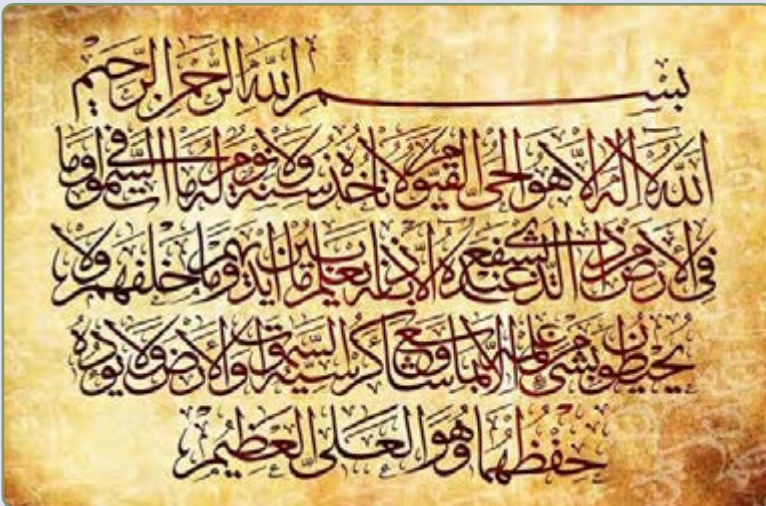 بسم الله الرحمن الرحيم
الله لا إله إلا هو الحي القيوم لا تأخذه سنة ولا نوم له ما في السموات وما
في الأرض من ذا الذي يشفع عنده إلا بإذنه يعلم ما بين أيديهم وما خلفهم ولا
يحيطون بشيء من علمه إلا بما شاء وسع كرسيه السموات والأرض ولا يؤده
حفظهما وهو العلي العظيم